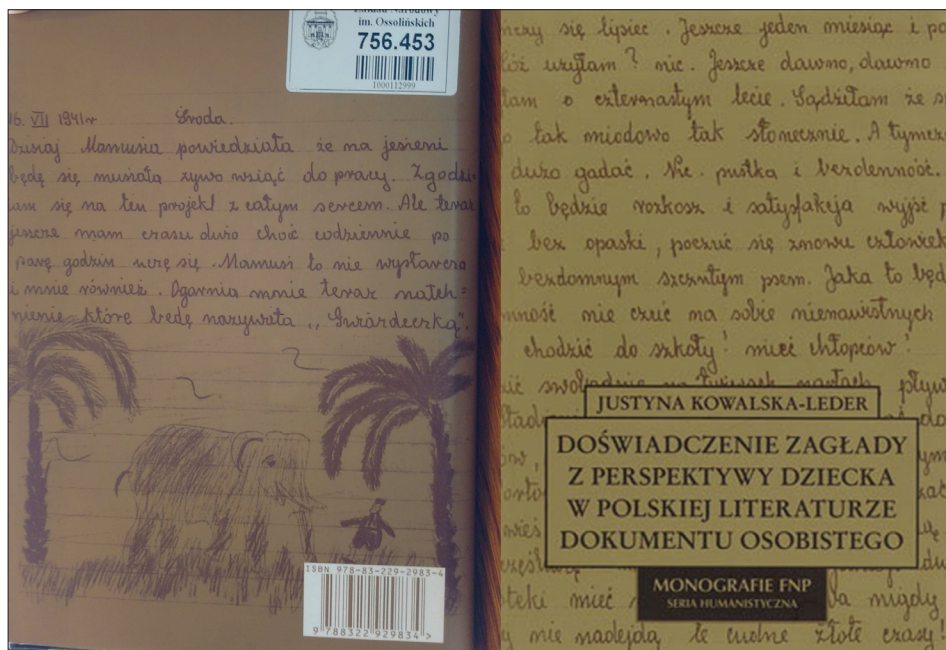 Narodowy
im. Ossolińskich
756.453
1000112999
16. VII 1941r Środa.
Dzisiaj Mamusia powiedziała że na jesieni
będę się musiała żywo wziąć do pracy. Zgodzi
łam się na ten projekt z całym sercem. Ale teraz
jeszcze mam czasu dużo choć codziennie po
parę godzin uczę się. Mamusi to nie wystarcza
i mnie również. Ogarnia mnie teraz natch=
nienie które będę nazywała
ISBN 978-83-229-2983-4
9 788322 929834 >
się lipiec. Jeszcze jeden miesiąc i po
użyłam? nic. Jeszcze dawno, dawno
o czternastym lecie. Sądziłam że
tak miodowo tak słonecznie. A tymcza
dużo gadać. Nic. pustka i bezdenność.
to będzie rozkosz i satysfakcja wyjść
bez opaski, poczuć się znowu człowiek
bezdomnym szczutym psem. Jaka to będ
mność nie czuć na sobie nienawistnych
chodzić do szkoły! mieć chłopców!
JUSTYNA KOWALSKA-LEDER
DOŚWIADCZENIE ZAGŁADY
Z PERSPEKTYWY DZIECKA
W POLSKIEJ LITERATURZE
DOKUMENTU OSOBISTEGO
MONOGRAFIE FNP
SERIA HUMANISTYCZNA
mieć
nigdy
nie nadejdą te cudne złote czasy!